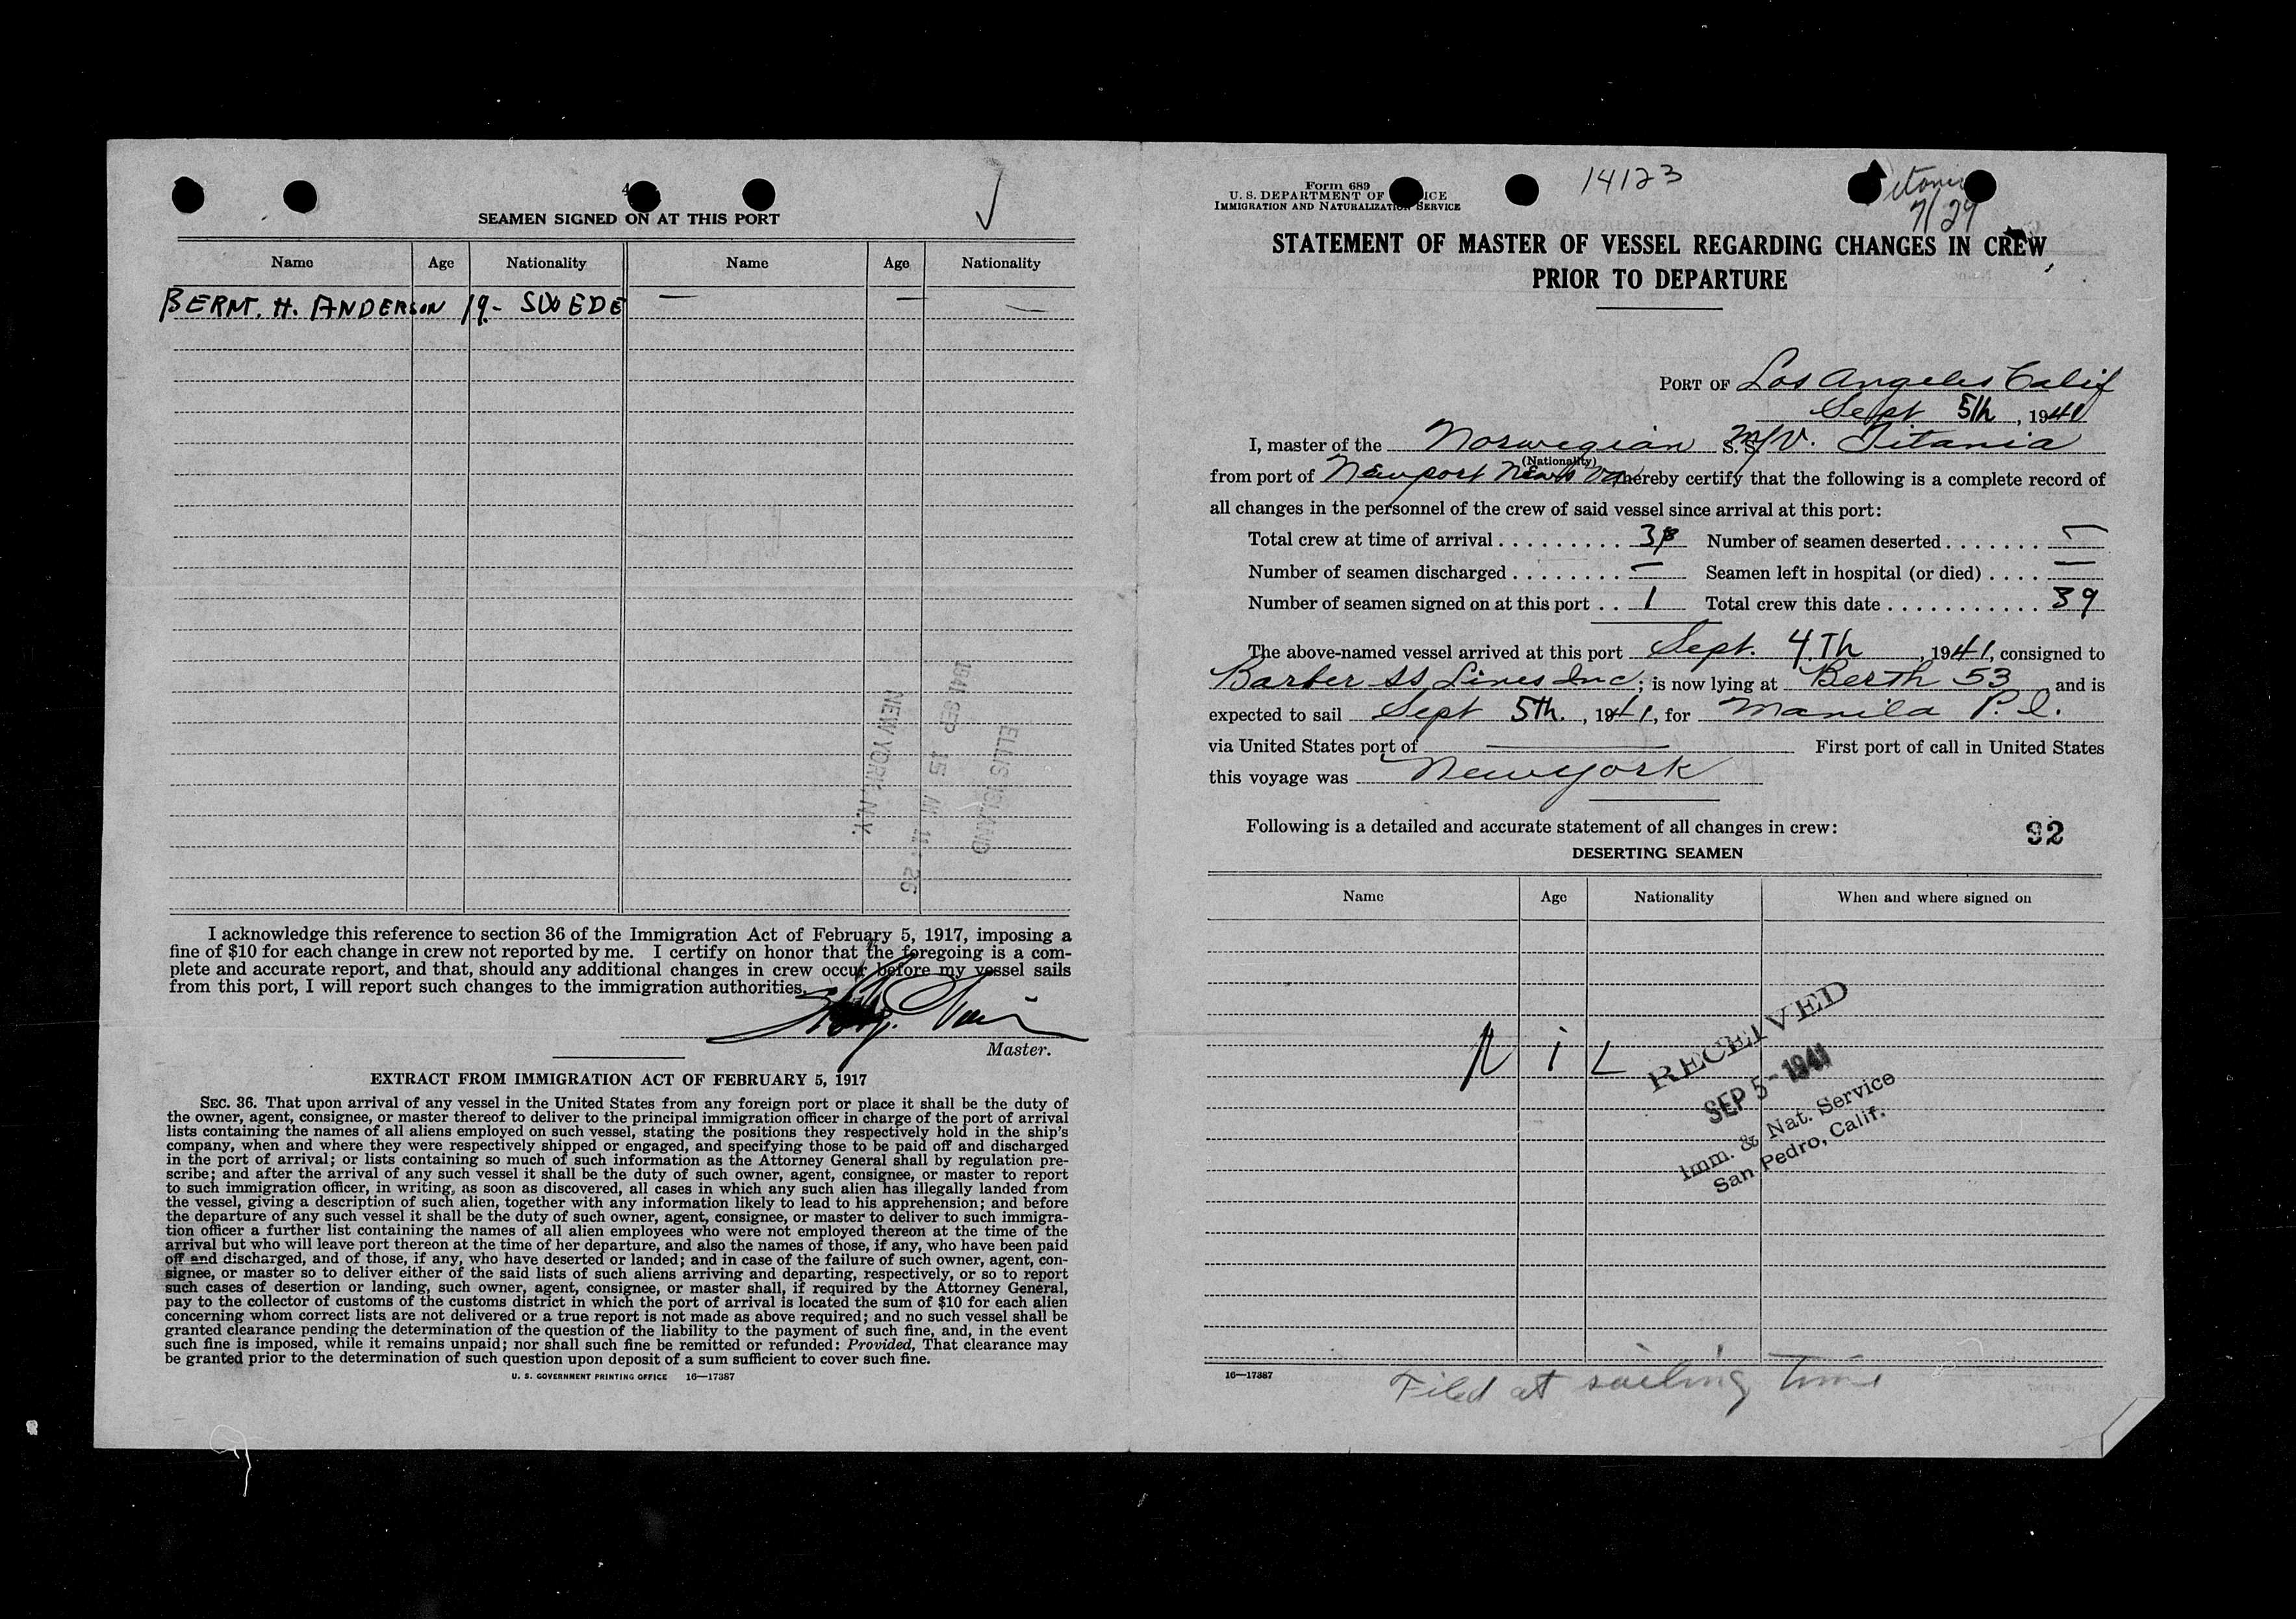 4
SEAMEN SIGNED ON AT THIS PORT
Name Age Nationality Name Age Nationality
BERNT. H. ANDERSON 19- SWEDE — — —
1941 SEP 15 AM 11 26
ELLIS ISLAND
NEW YORK, N.Y.
I acknowledge this reference to section 36 of the Immigration Act of February 5, 1917, imposing a
fine of $10 for each change in crew not reported by me. I certify on honor that the foregoing is a com-
plete and accurate report, and that, should any additional changes in crew occur before my vessel sails
from this port, I will report such changes to the immigration authorities.
Master.
EXTRACT FROM IMMIGRATION ACT OF FEBRUARY 5, 1917
SEC. 36. That upon arrival of any vessel in the United States from any foreign port or place it shall be the duty of
the owner, agent, consignee, or master thereof to deliver to the principal immigration officer in charge of the port of arrival
lists containing the names of all aliens employed on such vessel, stating the positions they respectively hold in the ship's
company, when and where they were respectively shipped or engaged, and specifying those to be paid off and discharged
in the port of arrival; or lists containing so much of such information as the Attorney General shall by regulation pre-
scribe; and after the arrival of any such vessel it shall be the duty of such owner, agent, consignee, or master to report
to such immigration officer, in writing, as soon as discovered, all cases in which any such alien has illegally landed from
the vessel, giving a description of such alien, together with any information likely to lead to his apprehension; and before
the departure of any such vessel it shall be the duty of such owner, agent, consignee, or master to deliver to such immigra-
tion officer a further list containing the names of all alien employees who were not employed thereon at the time of the
arrival but who will leave port thereon at the time of her departure, and also the names of those, if any, who have been paid
off and discharged, and of those, if any, who have deserted or landed; and in case of the failure of such owner, agent, con-
signee, or master so to deliver either of the said lists of such aliens arriving and departing, respectively, or so to report
such cases of desertion or landing, such owner, agent, consignee, or master shall, if required by the Attorney General,
pay to the collector of customs of the customs district in which the port of arrival is located the sum of $10 for each alien
concerning whom correct lists are not delivered or a true report is not made as above required; and no such vessel shall be
granted clearance pending the determination of the question of the liability to the payment of such fine, and, in the event
such fine is imposed, while it remains unpaid; nor shall such fine be remitted or refunded: Provided, That clearance may
be granted prior to the determination of such question upon deposit of a sum sufficient to cover such fine.
U. S. GOVERNMENT PRINTING OFFICE 16—17387
Form 689
U. S. DEPARTMENT OF ICE
IMMIGRATION AND NATURALIZATION SERVICE
14123
7/29
STATEMENT OF MASTER OF VESSEL REGARDING CHANGES IN CREW
PRIOR TO DEPARTURE
PORT OF Los Angeles Calif
Sept 5th, 1941
I, master of the Norwegian S. S. M/V. Titania
(Nationality)
from port of Newport News Va hereby certify that the following is a complete record of
all changes in the personnel of the crew of said vessel since arrival at this port:
Total crew at time of arrival 38 Number of seamen deserted —
Number of seamen discharged — Seamen left in hospital (or died) —
Number of seamen signed on at this port 1 Total crew this date 39
The above-named vessel arrived at this port Sept. 4.Th, 1941, consigned to
Barber SS Lines Inc; is now lying at Berth 53 and is
expected to sail Sept 5Th., 1941, for Manila P.I.
via United States port of — First port of call in United States
this voyage was New York
Following is a detailed and accurate statement of all changes in crew:
92
DESERTING SEAMEN
Name Age Nationality When and where signed on
NiL
RECEIVED
SEP 5-1941
Imm. & Nat. Service
San Pedro, Calif.
16—17387
Filed at sailing time